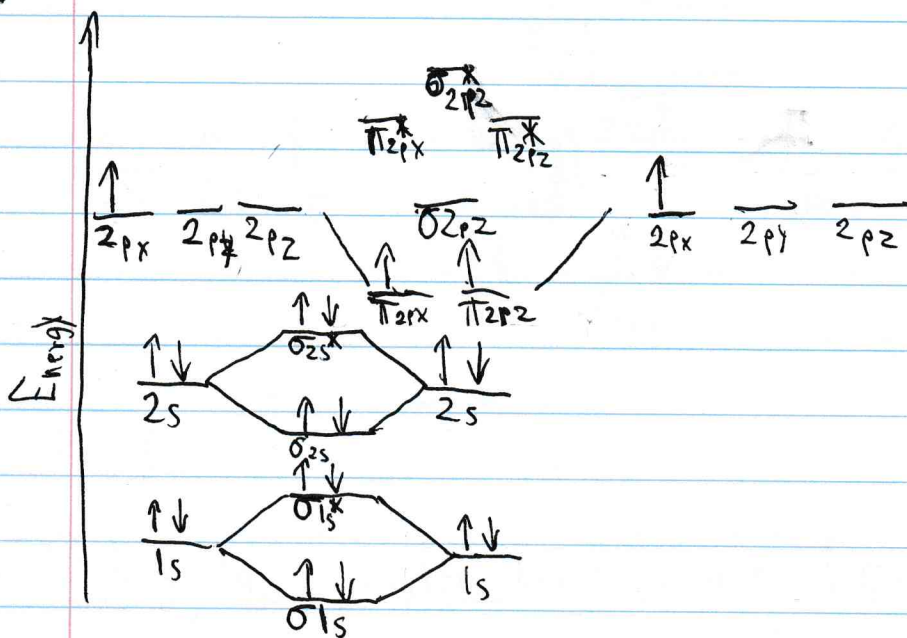 σ2pz*
π2px* π2pz*
↑ ↑
2px 2py 2pz σ2pz 2px 2py 2pz
↑ ↑
π2px π2pz
↑↓
σ2s*
↑↓ ↑↓
2s 2s
↑↓
σ2s
↑↓
σ1s*
↑↓ ↑↓
1s 1s
↑↓
σ1s
Energy